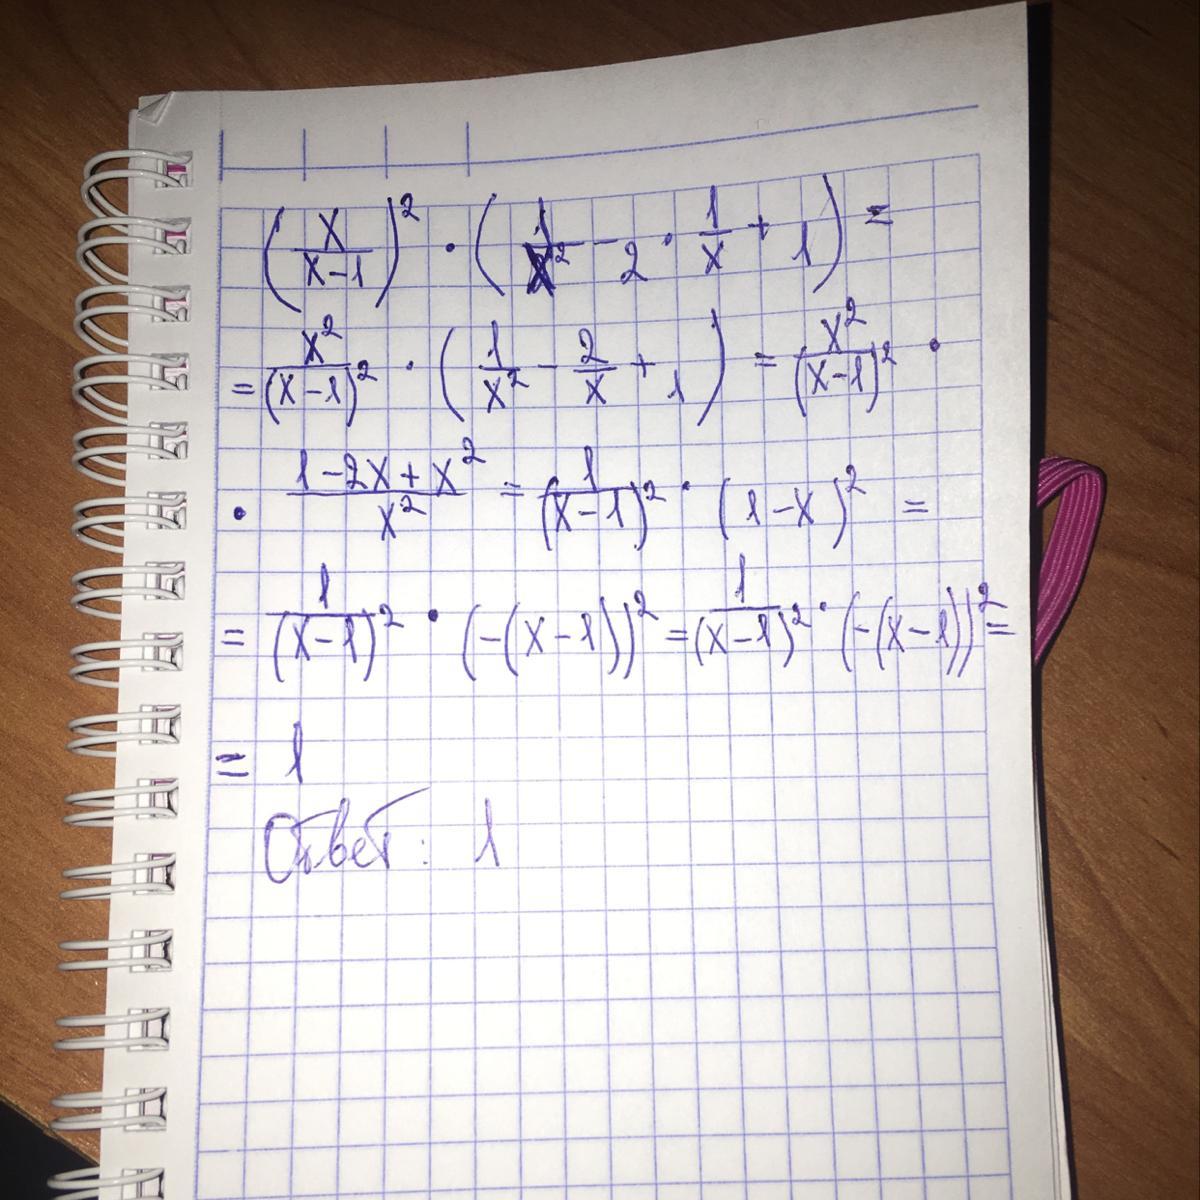 (x/(x-1))² · (1/x² - 2 · 1/x + 1) =
= x²/(x-1)² · (1/x² - 2/x + 1) = x²/(x-1)² ·
· (1-2x+x²)/x² = 1/(x-1)² · (1-x)² =
= 1/(x-1)² · (-(x-1))² = 1/(x-1)² · (-(x-1))² =
= 1
Ответ: 1